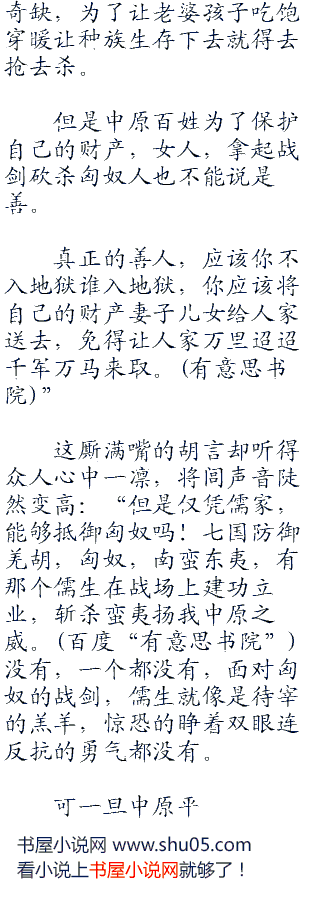 奇缺，为了让老婆孩子吃饱
穿暖让种族生存下去就得去
抢去杀。
但是中原百姓为了保护
自己的财产，女人，拿起战
剑砍杀匈奴人也不能说是
善。
真正的善人，应该你不
入地狱谁入地狱，你应该将
自己的财产妻子儿女给人家
送去，免得让人家万里迢迢
千军万马来取。(有意思书
院)”
这厮满嘴的胡言却听得
众人心中一凛，将闾声音陡
然变高：“但是仅凭儒家，
能够抵御匈奴吗！七国防御
羌胡，匈奴，南蛮东夷，有
那个儒生在战场上建功立
业，斩杀蛮夷扬我中原之
威。(百度“有意思书院”)
没有，一个都没有，面对匈
奴的战剑，儒生就像是待宰
的羔羊，惊恐的睁着双眼连
反抗的勇气都没有。
可一旦中原平
书屋小说网 www.shu05.com
看小说上书屋小说网就够了！